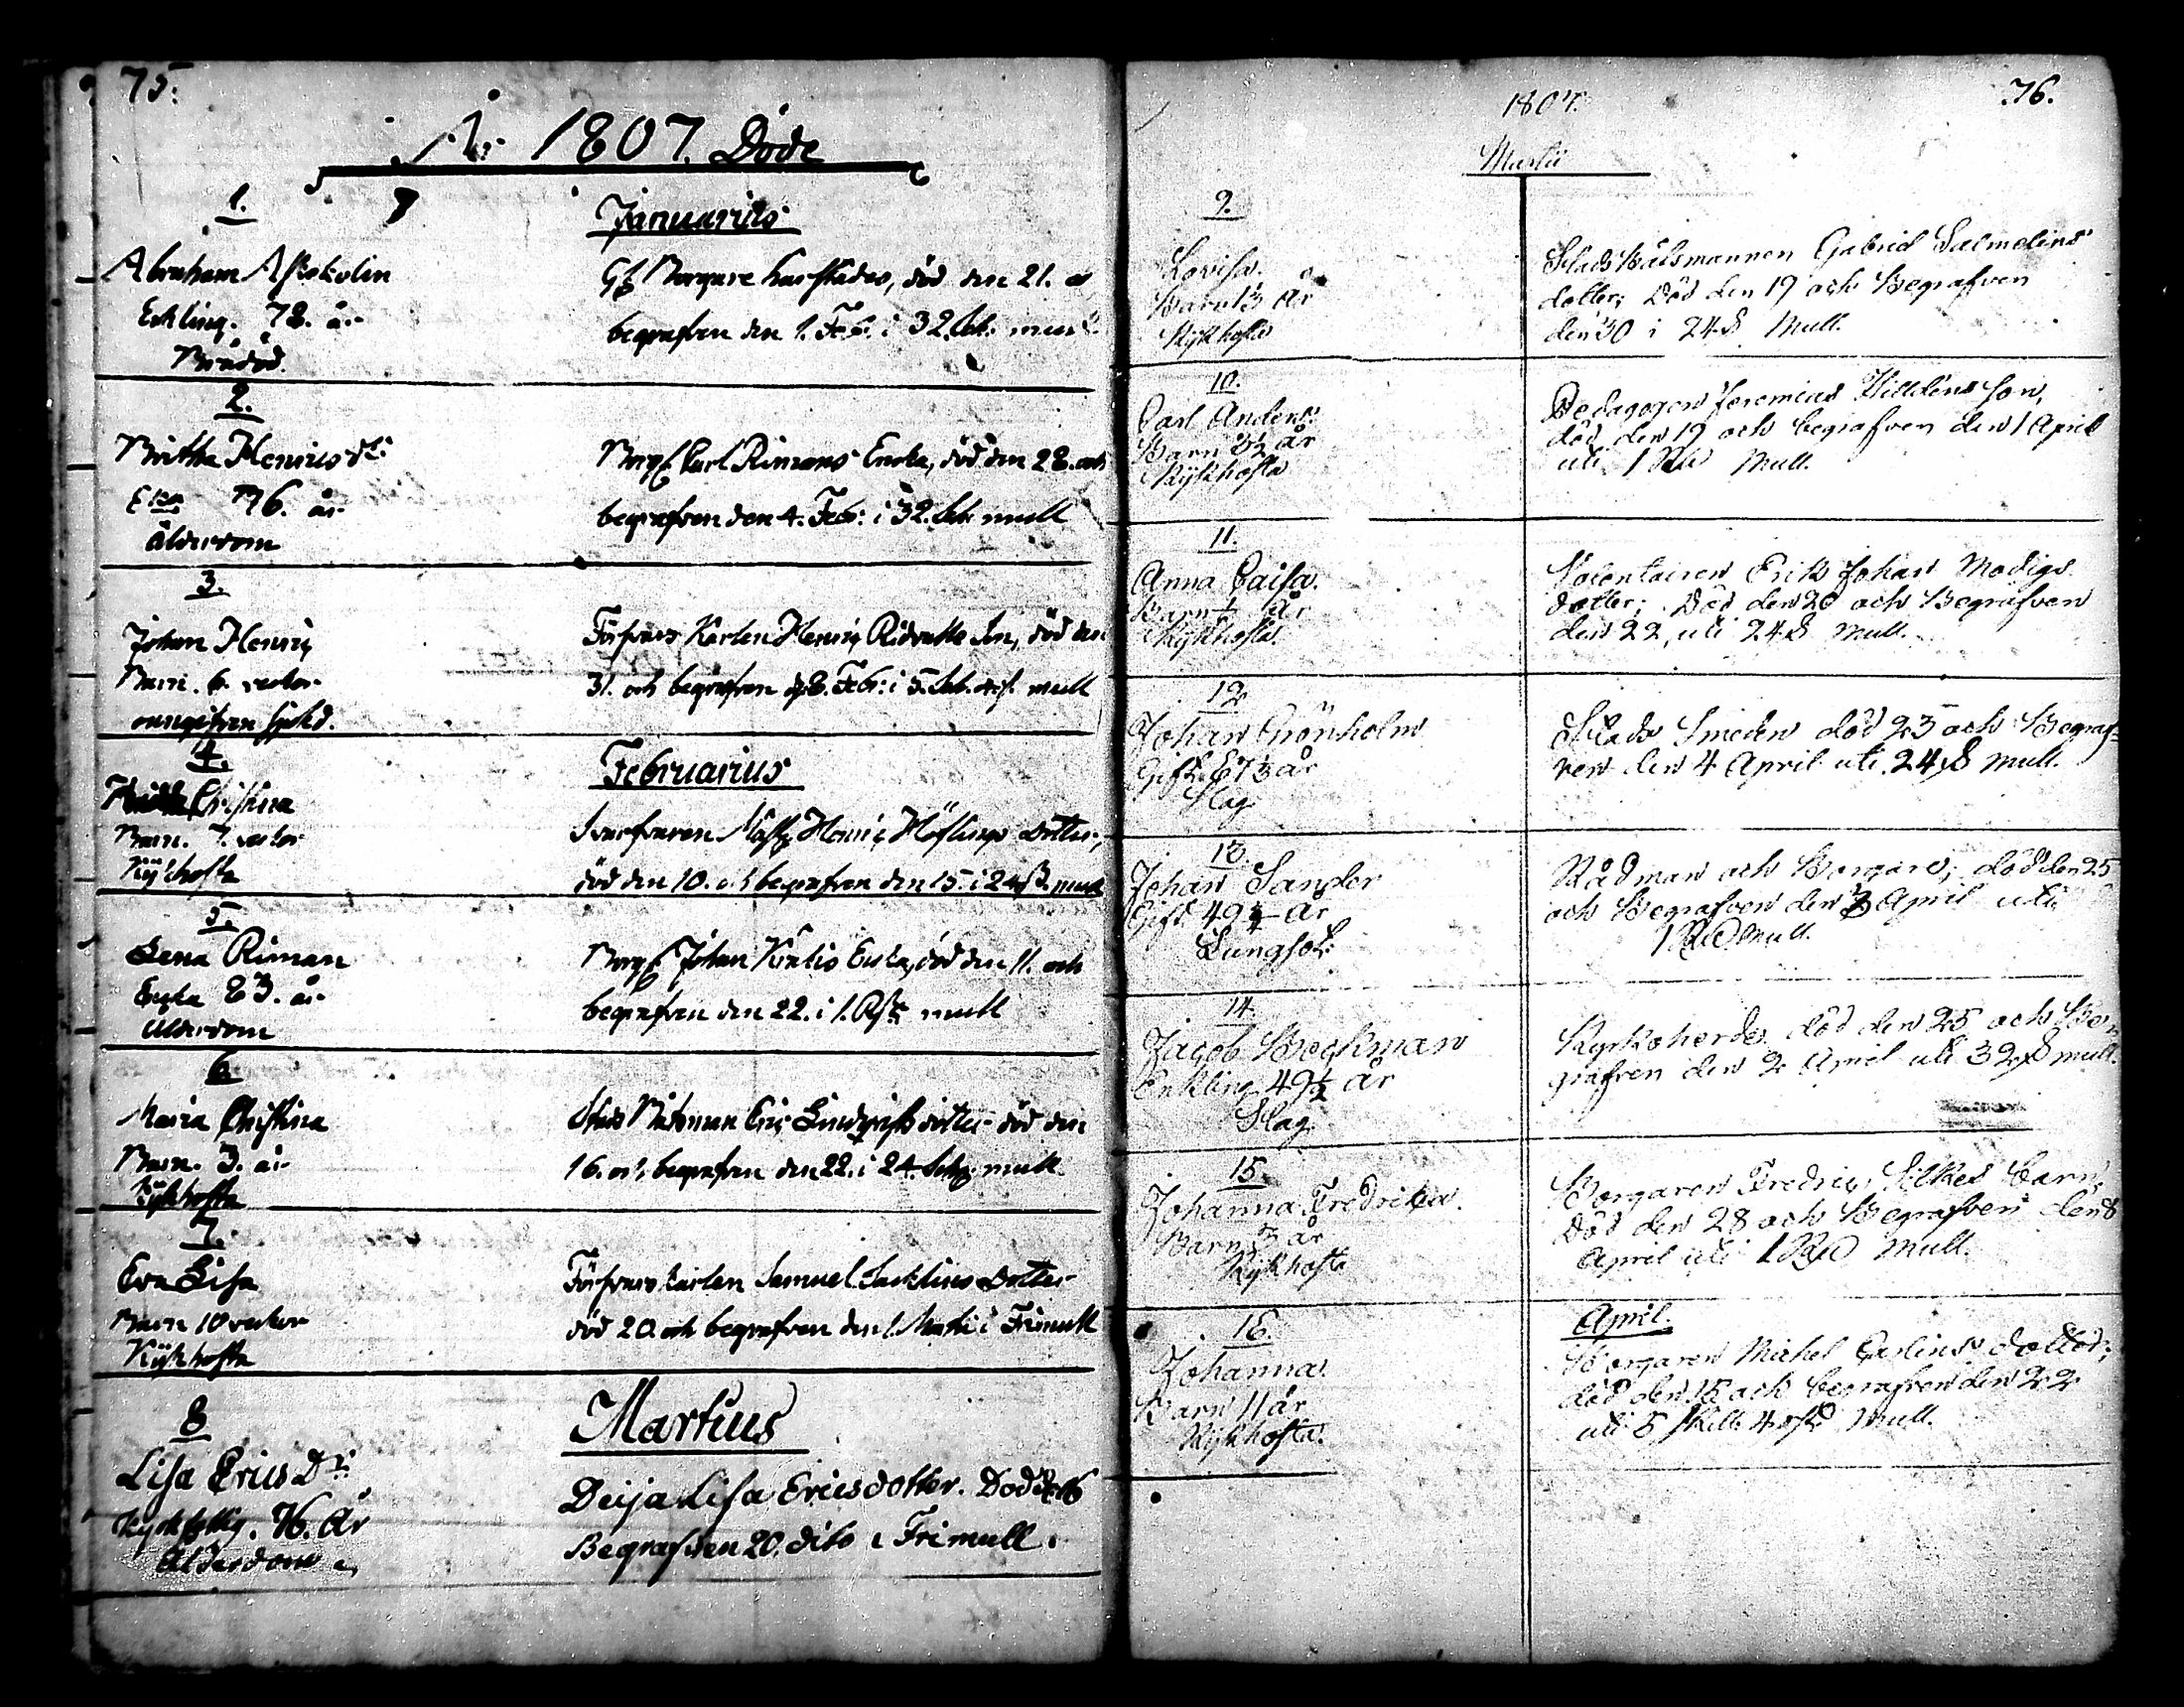 75.
År 1807. Döde
1.
Januarius
Abraham
Enkling. 78. år
Gl. Borgare död den 21.
begrafven den 1. Feb. i 32. sk. mull
2.
Britha Henricsdr:
Enka 76. år
Ålderdom
Borg. Carl Rimans Enka, död den 28. och
begrafven den 4. Feb: i 32. sk mull
3.
Johan Henric
Barn. 6. veckor
onngifven sjukd.
Karlen Henric Son, död den
31. och begrafven d. 8. Feb: i 5. sk. mull
4.
Februarius
Christina
Barn. 7. veckor
Kijkhosta
Svarfvaren Mäst. Henric Höflings Dotter,
död den 10. och begrafven den 15. i 24 sk. mull
5.
Lena Riman
Enka 83. år
Ålderdom
Borg. Johan Enka, död den 11. och
begrafven den 22. i 1. mull
6.
Maria Christina
Barn. 3. år
Kijkhosta
Stads Eric Lindqvists dotter död den
16. och begrafven den 22. i 24. sk. mull
7.
Eva Lisa
Barn 10 veckor
Kijkhosta
Karlen Samuel Dotter
död 20. och begrafven den 1. Martii i Frimull
8
Martius
Lisa Erics Dr:
76. År
Ålderdom
Deija Lisa Ericsdotter. Död
Begrafven 20. dito i Frimull.
76.
1807.
Martii
9.
Lovisa.
Barn 1½ År
Kijkhosta
Stads Gabriel Salmelins
dotter; Död den 19 och Begrafven
den 30 i 24 s Mull.
10.
Carl Anders.
Barn år
Kijkhosta
Pedagogen Jeremias son,
död den 19 och begrafven den 1 April
uti 1 Rd Mull.
11.
Anna Caisa.
Barn År
Kijkhosta.
Volontairen Erik Johan Modigs
dotter; Död den 20 och Begrafven
den 22, uti 24 s Mull.
12
Johan Grönholm
Gift 67½ år
Slag.
Stads Smeden död 23 och Begraf-
ven den 4 April uti 24 s Mull.
13.
Johan Sander
Gift 49 År
Lungsot:
Rådman och Borgare; död den 25
och Begrafven den 3 April uti
1 Rd Mull.
14
Jacob Beckman
Enkling 49½ År
Slag
Kyrkoherde död den 25 och Be-
grafven den 2 April uti 32 s mull.
15.
Johanna Fredrika.
Barn 3 år
Kijkhosta
Borgaren Fredric Silkes barn;
död den 28 och Begrafven den 8
April uti 1 Rd Mull.
16.
April.
Johanna.
Barn 11 år
Kijkhosta.
Borgaren Michel Carlins dotter;
död den 15 och begrafven den 22
uti 5 skill. 4 Mull.